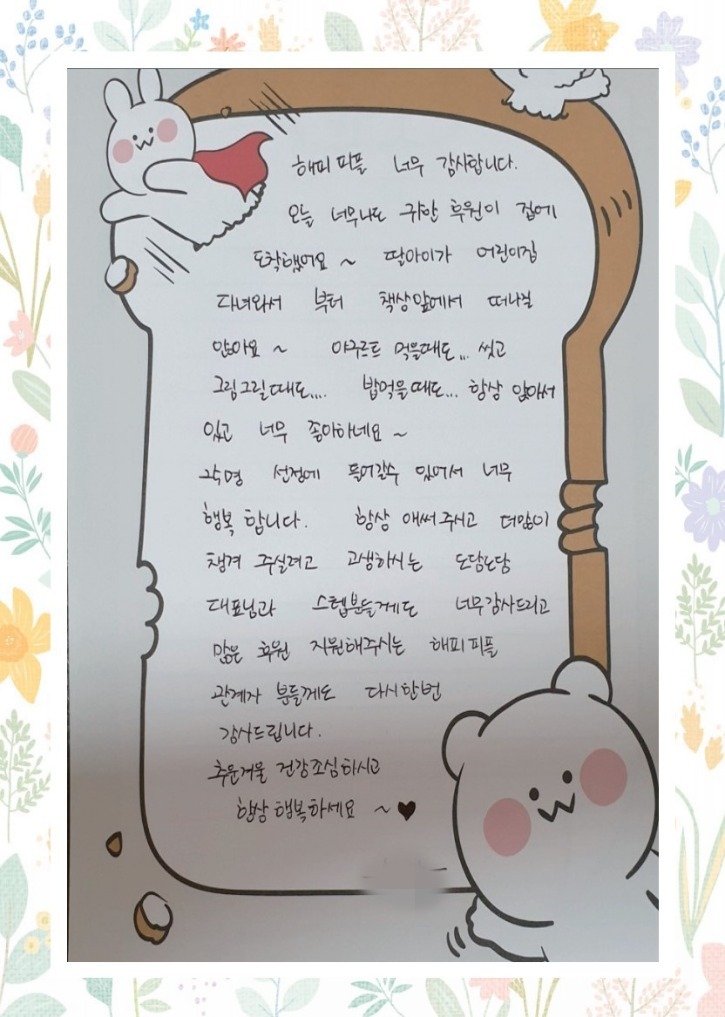 해피피플 너무 감사합니다.
오늘 너무나도 귀한 후원이 집에
도착했어요 ~ 딸아이가 어린이집
다녀와서 부터 책상앞에서 떠나질
않아요 ~ 야쿠르트 먹을때도... 씻고
그림그릴때도.... 밥먹을때도... 항상 앉아서
있고 너무 좋아하네요 ~
고숙명 선정에 들어갈수 있어서 너무
행복 합니다. 항상 애써주시고 더많이
챙겨 주실려고 고생하시는 도담도담
대표님과 스텝분들께도 너무감사드리고
많은 후원 지원해주시는 해피피플
관계자 분들께도 다시한번
감사드립니다.
추운겨울 건강조심하시고
항상 행복하세요 ~ ♥